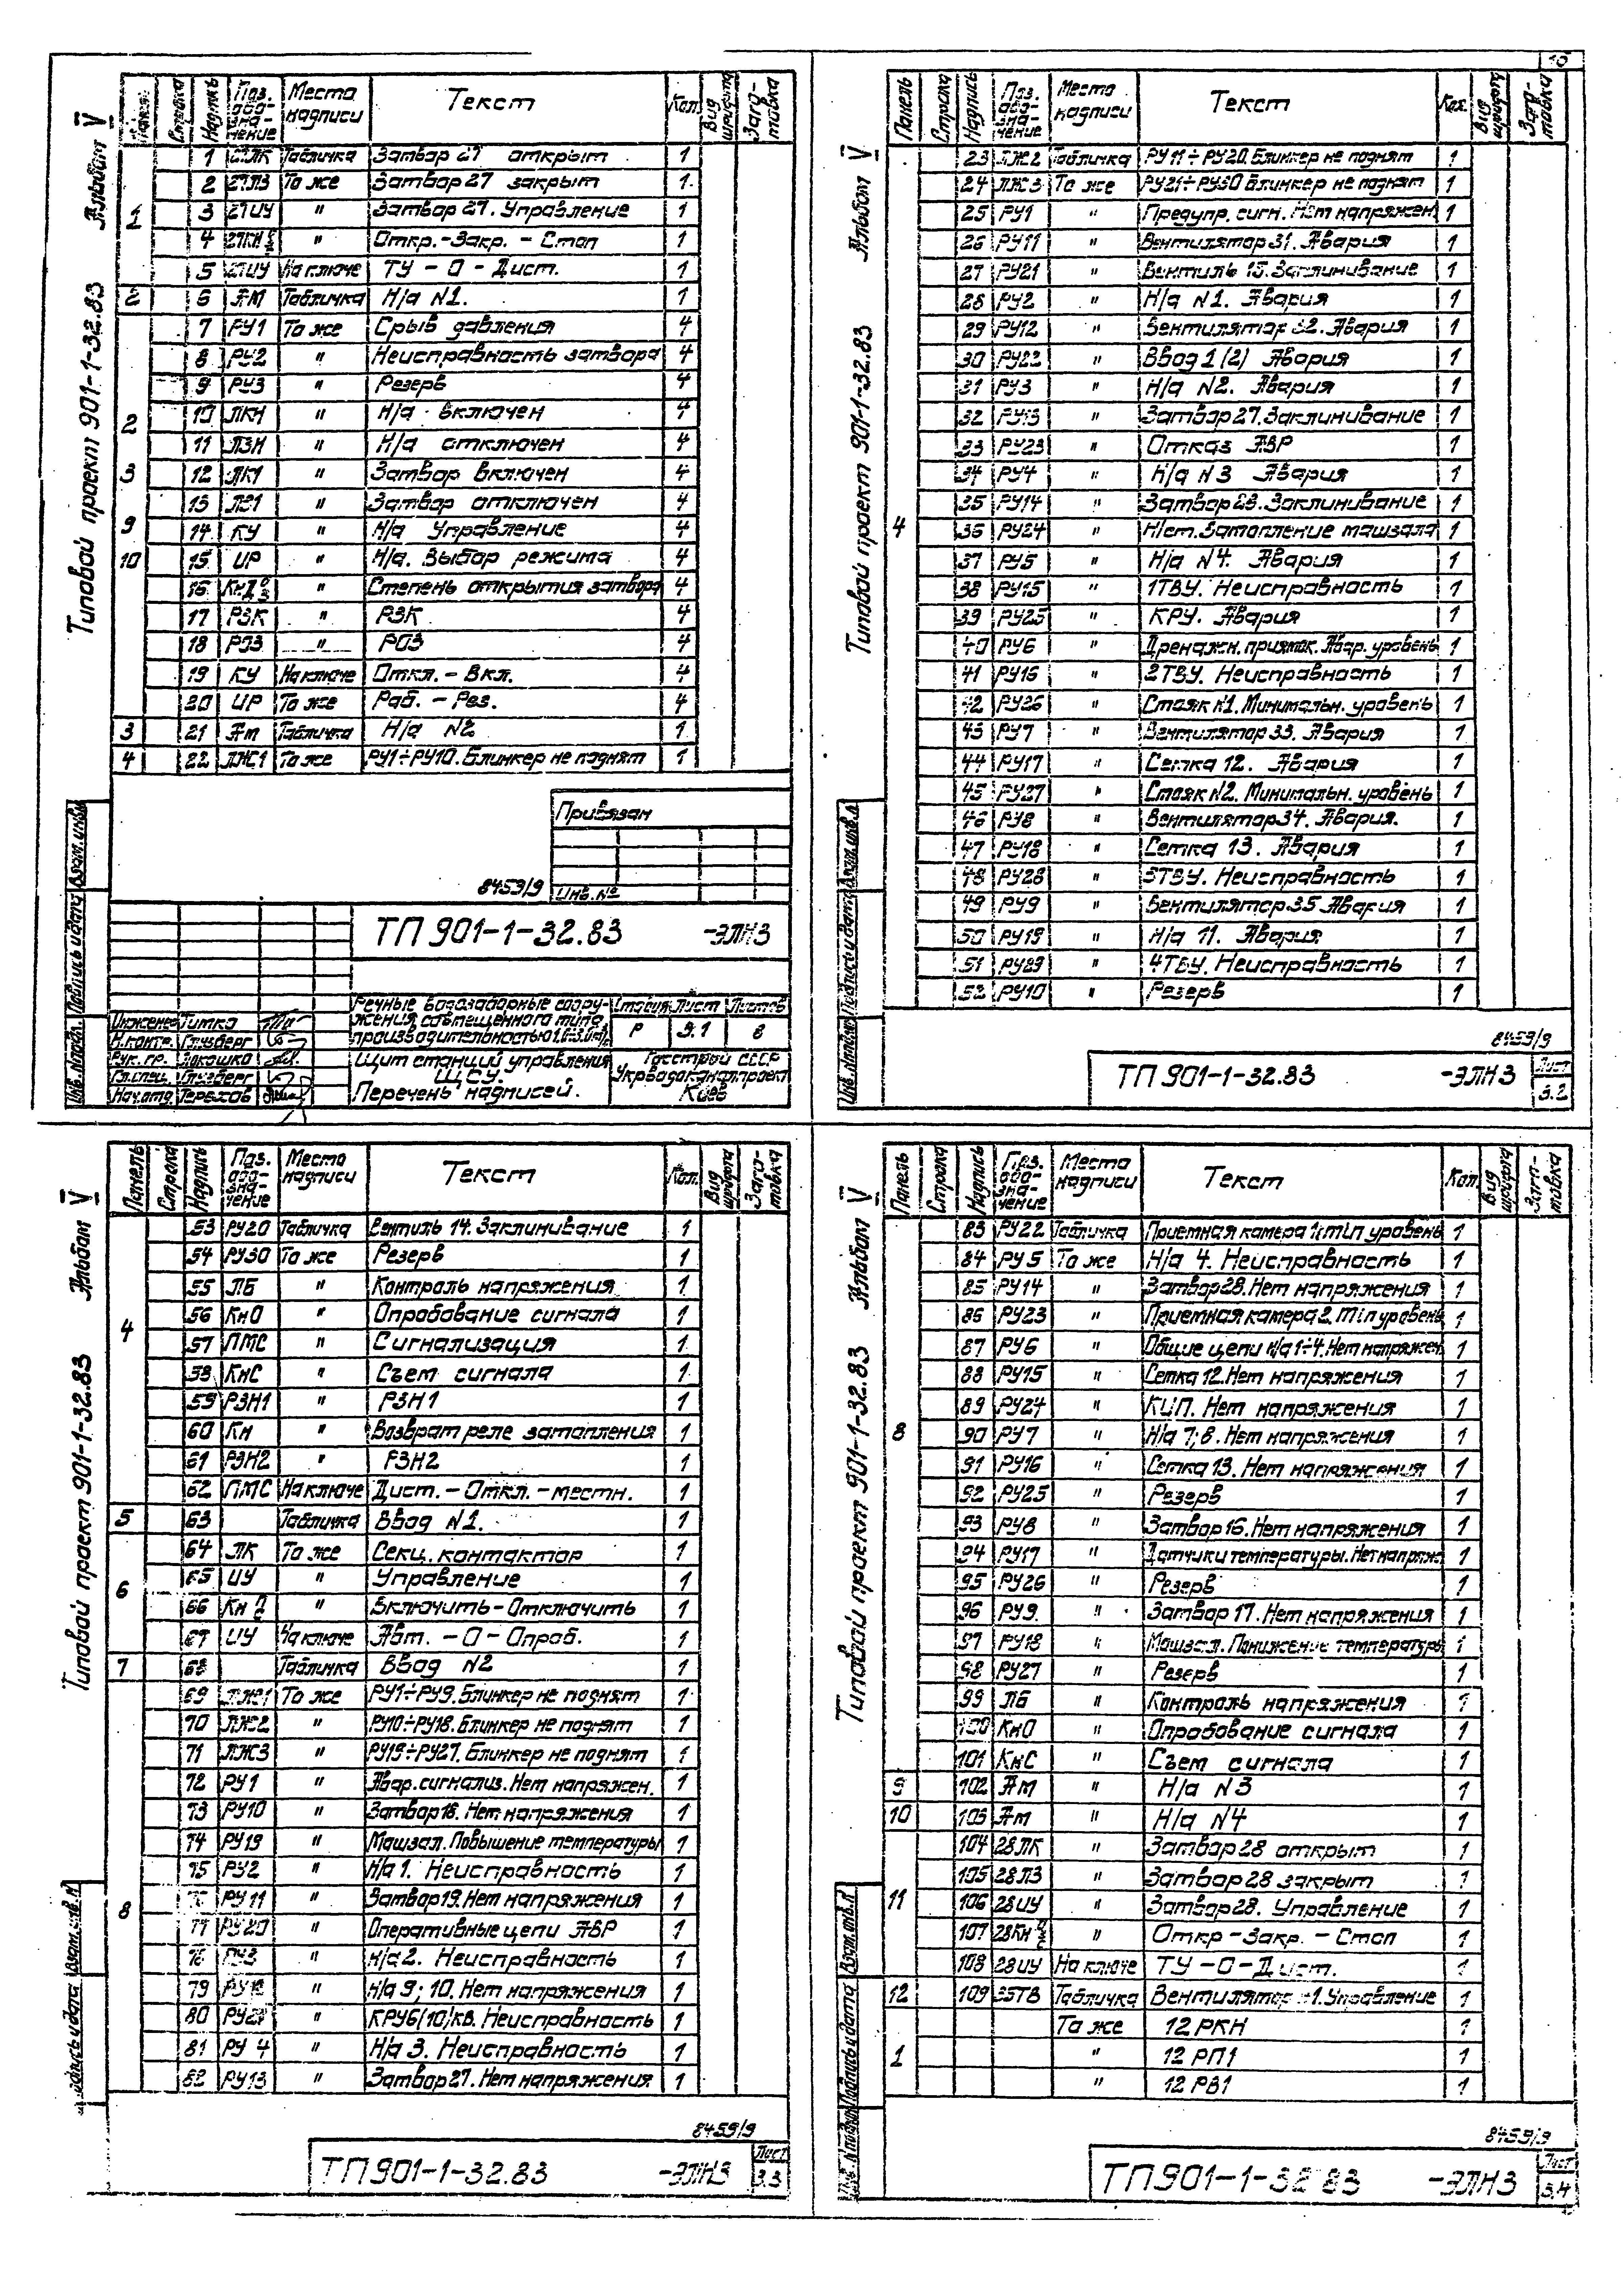 10
Альбом V
Типовой проект 901-1-32.83
Строка Надпись Поз. обо-зна-чение Место надписи Текст Кол. Вид шрифта Заго-товка
1 1 27ЛК Табличка Затвор 27 открыт 1
2 27ЛЗ То же Затвор 27 закрыт 1
3 27ИУ " Затвор 27. Управление 1
4 27КН " Откр.-Закр. - Стоп 1
5 27ИУ На ключе ТУ - О - Дист. 1
2 6 Ам Табличка Н/а N1. 1
7 РУ1 То же Срыв давления 4
8 РУ2 " Неисправность затвора 4
9 РУ3 " Резерв 4
2 10 ЛКН " Н/а включен 4
11 ЛЗН " Н/а отключен 4
3 12 ЛК1 " Затвор включен 4
13 ЛЗ1 " Затвор отключен 4
9 14 КУ " Н/а Управление 4
10 15 ИР " Н/а. Выбор режима 4
16 " Степень открытия затвора 4
17 РЗК " РЗК 4
18 РОЗ " РОЗ 4
19 КУ На ключе Откл. - Вкл. 4
20 ИР То же Раб. - Рез. 4
3 21 Ам Табличка Н/а N2 1
4 22 ЛЖ1 То же РУ1÷РУ10. Блинкер не поднят 1
Привязан
Инв. №
8459/9
ТП 901-1-32.83 -ЭЛНЗ
Речные водозаборные соору-
жения совмещенного типа
производительностью
Стадия Лист Листов
Р 3.1 8
Инженер Титко
Н.контр. Глузберг
Рук. гр. Локошко
Гл.спец. Глузберг
Нач.отд. Терехов
Щит станций управления
ЩСУ.
Перечень надписей.
Госстрой СССР
Укрводоканалпроект
Киев
Инв. № подл. Подпись и дата Взам. инв. №
Альбом V
Типовой проект 901-1-32.83
Панель Строка Надпись Поз. обо-зна-чение Место надписи Текст Кол. Вид шрифта Заго-товка
23 ЛЖ2 Табличка РУ11÷РУ20. Блинкер не поднят 1
24 ЛЖ3 То же РУ21÷РУ30 Блинкер не поднят 1
25 РУ1 " Предупр. сигн. Нет напряжен 1
26 РУ11 " Вентилятор 31. Авария 1
27 РУ21 " Вентиль 15. Заклинивание 1
28 РУ2 " Н/а N1. Авария 1
29 РУ12 " Вентилятор 32. Авария 1
30 РУ22 " Ввод 1 (2) Авария 1
31 РУ3 " Н/а N2. Авария 1
32 РУ13 " Затвор 27. Заклинивание 1
33 РУ23 " Отказ АВР 1
34 РУ4 " Н/а N3 Авария 1
35 РУ14 " Затвор 28. Заклинивание 1
4 36 РУ24 " Н/ст. Затопление машзала 1
37 РУ5 " Н/а N4. Авария 1
38 РУ15 " 1ТВУ. Неисправность 1
39 РУ25 " КРУ. Авария 1
40 РУ6 " Дренажн. приямок. Авар. уровень 1
41 РУ16 " 2ТВУ. Неисправность 1
42 РУ26 " Стояк N1. Минимальн. уровень 1
43 РУ7 " Вентилятор 33. Авария 1
44 РУ17 " Сетка 12. Авария 1
45 РУ27 " Стояк N2. Минимальн. уровень 1
46 РУ8 " Вентилятор 34. Авария. 1
47 РУ18 " Сетка 13. Авария 1
48 РУ28 " 3ТВУ. Неисправность 1
49 РУ9 " Вентилятор 35 Авария 1
50 РУ19 " Н/а 11. Авария 1
51 РУ29 " 4ТВУ. Неисправность 1
52 РУ10 " Резерв 1
8459/9
ТП 901-1-32.83 -ЭЛНЗ
Лист 3.2
Инв. № подл. Подпись и дата Взам. инв. №
Альбом V
Типовой проект 901-1-32.83
Панель Строка Надпись Поз. обо-зна-чение Место надписи Текст Кол. Вид шрифта Заго-товка
53 РУ20 Табличка Вентиль 14. Заклинивание 1
54 РУ30 То же Резерв 1
55 ЛБ " Контроль напряжения 1
56 КнО " Опробование сигнала 1
4 57 ПМС " Сигнализация 1
58 КнС " Съем сигнала 1
59 РЗН1 " РЗН1 1
60 Кн " Возврат реле затопления 1
61 РЗН2 " РЗН2 1
62 ПМС На ключе Дист. - Откл. - местн. 1
5 63 Табличка Ввод N1. 1
64 ЛК То же Секц. контактор 1
6 65 ИУ " Управление 1
66 Кн " Включить-Отключить 1
67 ИУ На ключе Авт. - О - Опроб. 1
7 68 Табличка Ввод N2 1
69 ЛЖ1 То же РУ1÷РУ9. Блинкер не поднят 1
70 ЛЖ2 " РУ10÷РУ18. Блинкер не поднят 1
71 ЛЖ3 " РУ19÷РУ27. Блинкер не поднят 1
72 РУ1 " Авар. сигнализ. Нет напряжен. 1
73 РУ10 " Затвор 18. Нет напряжения 1
74 РУ19 " Машзал. Повышение температуры 1
75 РУ2 " Н/а 1. Неисправность 1
8 76 РУ11 " Затвор 19. Нет напряжения 1
77 РУ20 " Оперативные цепи АВР 1
78 РУ3 " Н/а 2. Неисправность 1
79 РУ12 " Н/а 9; 10. Нет напряжения 1
80 РУ21 " КРУ6(10)кв. Неисправность 1
81 РУ 4 " Н/а 3. Неисправность 1
82 РУ13 " Затвор 27. Нет напряжения 1
8459/9
ТП 901-1-32.83 -ЭЛНЗ
Лист 3.3
Подпись и дата Взам. инв. №
Альбом V
Типовой проект 901-1-32.83
Панель Строка Надпись Поз. обо-зна-чение Место надписи Текст Кол. Вид шрифта Заго-товка
83 РУ22 Табличка Приемная камера 1. min уровень 1
84 РУ5 То же Н/а 4. Неисправность 1
85 РУ14 " Затвор 28. Нет напряжения 1
86 РУ23 " Приемная камера 2. min уровень 1
87 РУ6 " Общие цепи Н/а 1÷4. Нет напряжен 1
88 РУ15 " Сетка 12. Нет напряжения 1
89 РУ24 " КИП. Нет напряжения 1
8 90 РУ7 " Н/а 7; 8. Нет напряжения 1
91 РУ16 " Сетка 13. Нет напряжения 1
92 РУ25 " Резерв 1
93 РУ8 " Затвор 16. Нет напряжения 1
94 РУ17 " Датчики температуры. Нет напряж. 1
95 РУ26 " Резерв 1
96 РУ9. " Затвор 17. Нет напряжения 1
97 РУ18 " Машзал. Понижение температуры 1
98 РУ27 " Резерв 1
99 ЛБ " Контроль напряжения 1
100 КнО " Опробование сигнала 1
101 КнС " Съем сигнала 1
9 102 Ам " Н/а N3 1
10 103 Ам " Н/а N4 1
104 28ЛК " Затвор 28 открыт 1
105 28ЛЗ " Затвор 28 закрыт 1
11 106 28ИУ " Затвор 28. Управление 1
107 28Кн " Откр-Закр. - Стоп 1
108 28ИУ На ключе ТУ-О-Дист. 1
12 109 35ТВ Табличка Вентилятор Управление 1
То же 12 РКН 1
1 " 12 РП1 1
" 12 РВ1 1
8459/9
ТП 901-1-32 83 -ЭЛНЗ
Лист 3.4
Инв. № подл. Подпись и дата Взам. инв. №